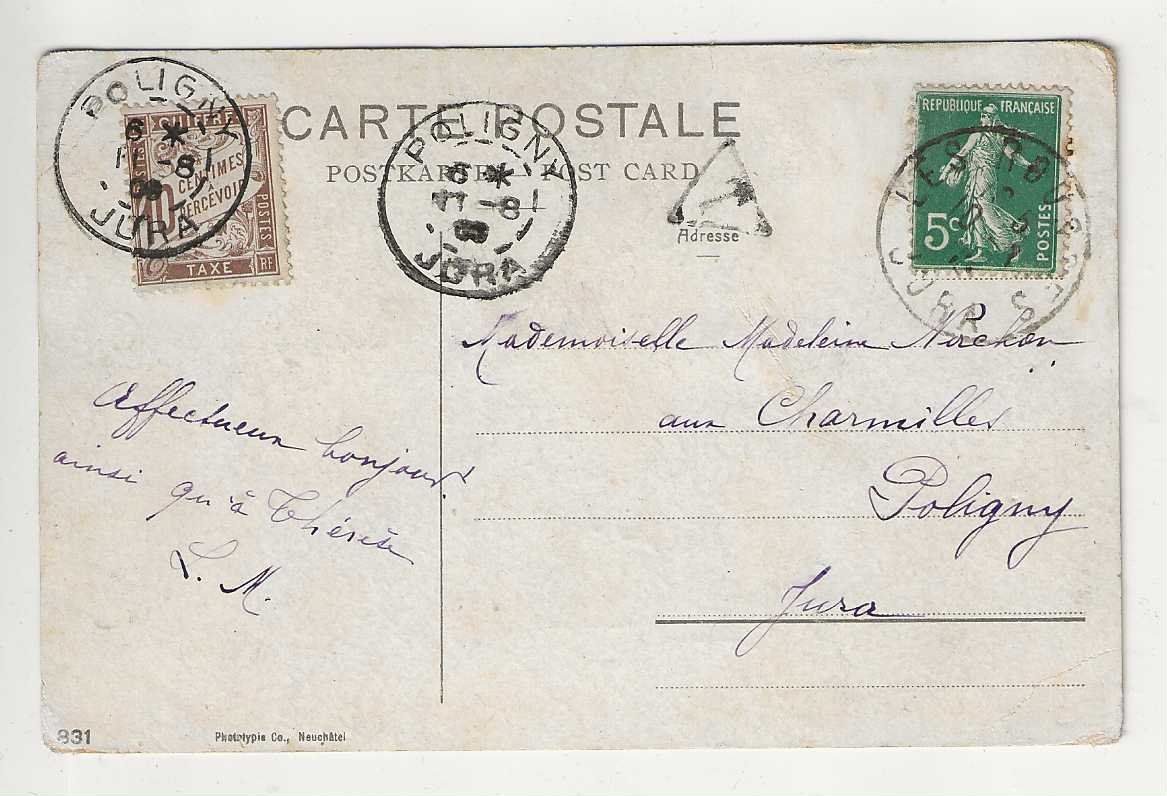 CARTE POSTALE
POSTKARTE POST CARD
Adresse
T
POLIGNY
6 * 11 -8 09
JURA
CHIFFRE
10 CENTIMES
A PERCEVOIR
POSTES
TAXE RF
POLIGNY
6 * 11 -8
JURA
REPUBLIQUE FRANÇAISE
5c
POSTES
LES ROUSSES
JURA
Mademoiselle Madeleine
aux Charmilles
Poligny
Jura
Affectueux bonjour
ainsi qu'à Thérèse
L. M.
831
Phototypie Co., Neuchâtel